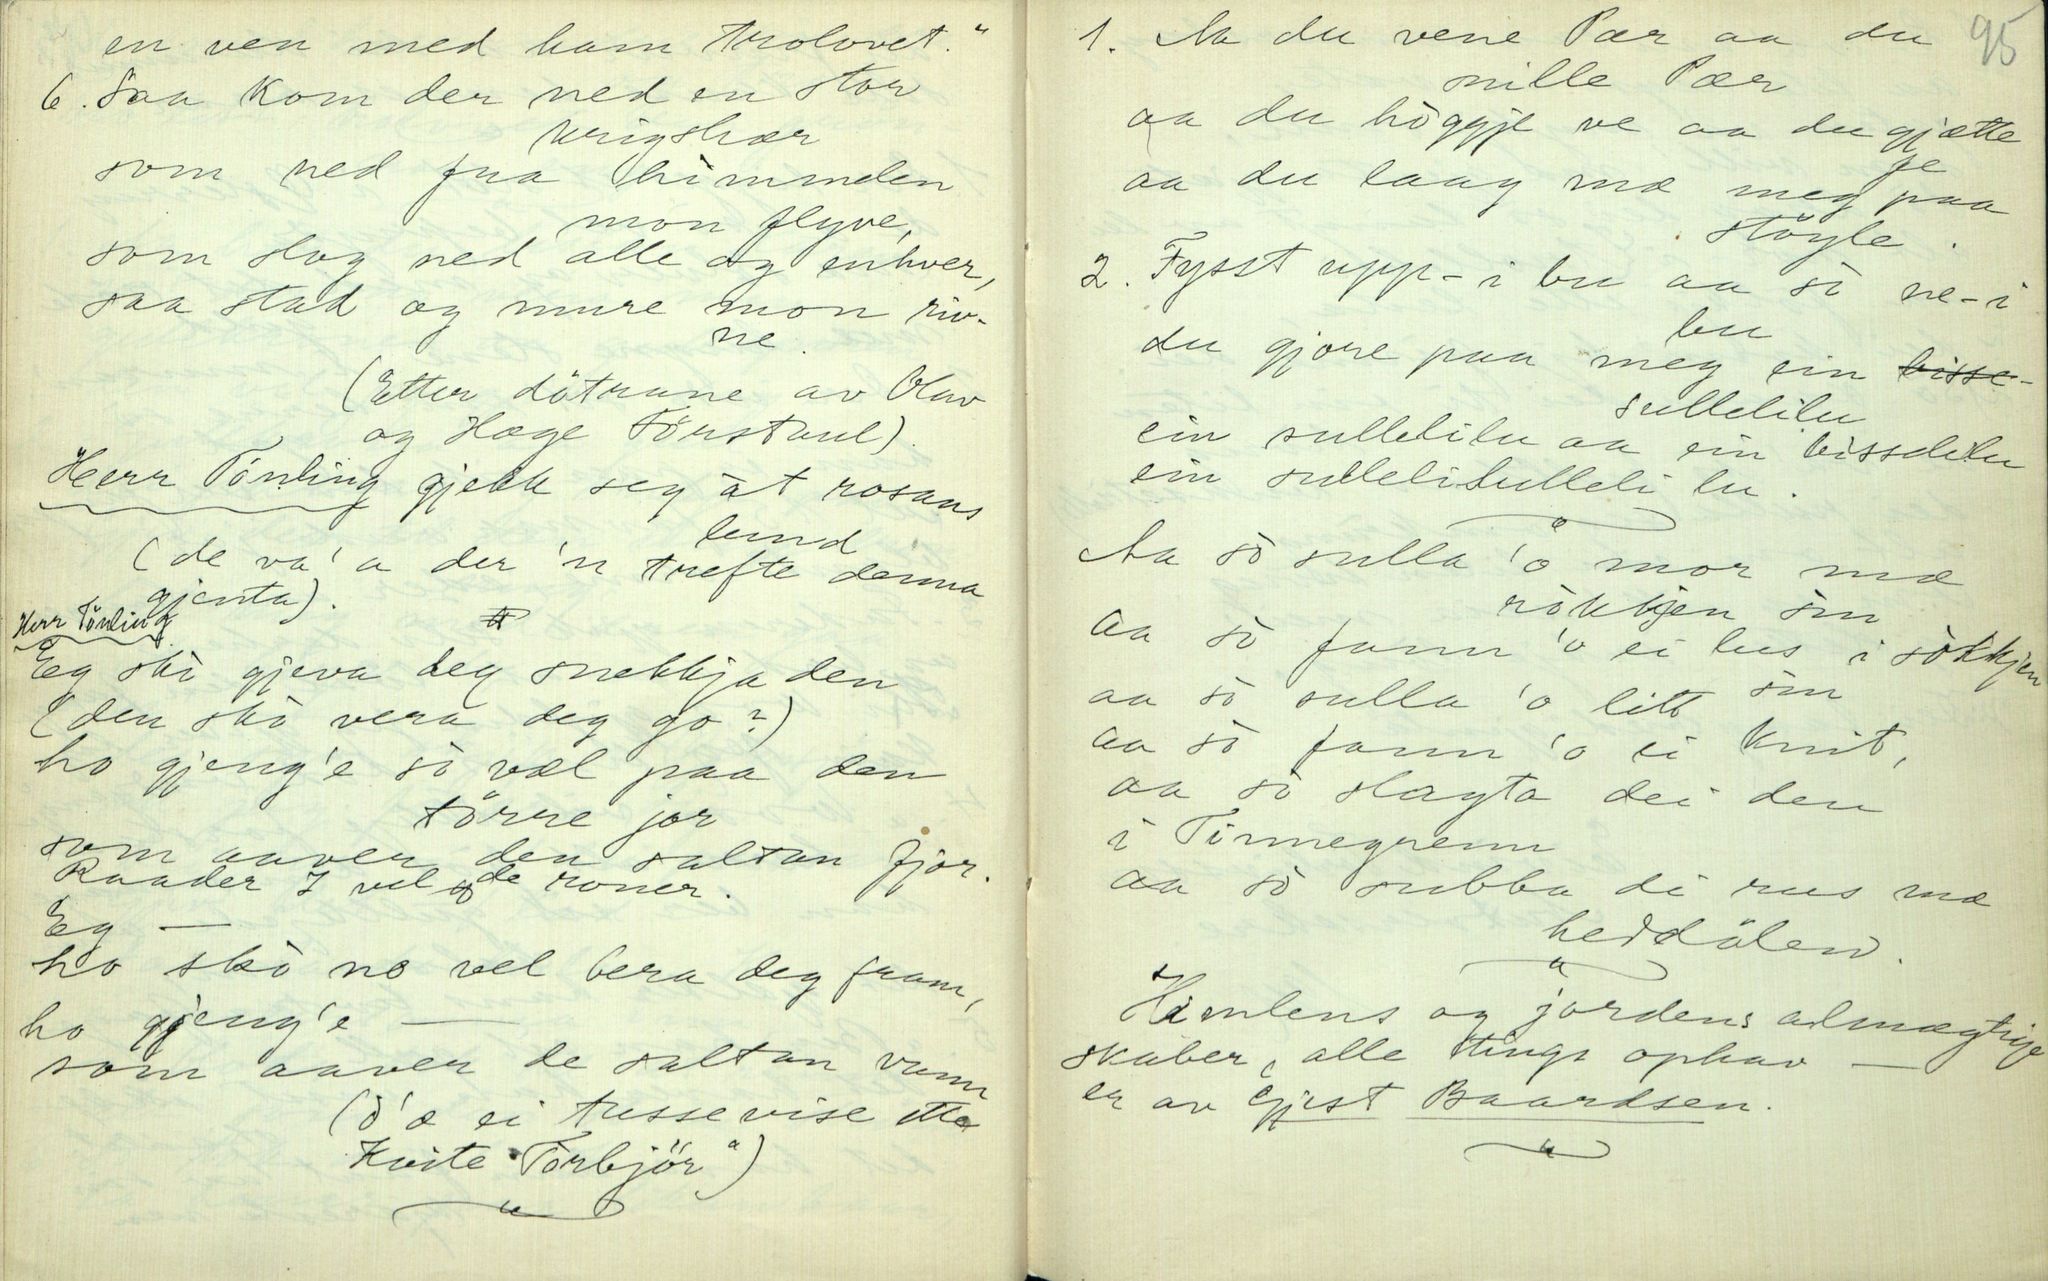 en ven med ham trolovet."
6. Saa kom der ned en stor
krigshær
som ned fraa himmelen
mon flyve,
som slog ned alle og enhver,
saa stad og mure mon riv-
ne.
(Etter dötrane av Olav
og Hæge Törstaul).
Herr Tönling gjekk seg åt rosans
lund
(de va' a der 'n trefte denna
gjenta).
Herr Tönling
Eg skò gjeva deg snekkja den
(den skò vera deg go?)
ho gjeng'e sò væl paa den
törre jor
som aaver den saltan fjor.
Raader I vel de roner.
Eg —
ho skò no vel bera deg fram,
ho gjeng'e —
som aaver de saltan vann
(d'æ ei tussevise etter
Kvite Torbjör")
"
95
1. Aa du vene Pær aa du
snille Pær
aa du höggje ve aa du gjætte
je
aa du laag mæ meg paa
stöyle.
2. Fysst upp-i bu aa sò ne-i
bu
du gjore paa meg ein bisse-
sullelilu
ein sullelilu aa ein bisselilu
ein sullelilulleli lu.
"
Aa sò sulla 'o mor mæ
rökkjen sin
aa sò fann 'o ei lus i sökkjen
sin
aa sò sulla 'o litt
aa sò fann 'o ei knit,
aa sò slagta dei den
i Tinnegrenn
aa sò subba di rus mæ
heddölen.
"
Himlens og jordens almægtige
skaber, alle tings ophav —
er av Gjest Baardsen.
"